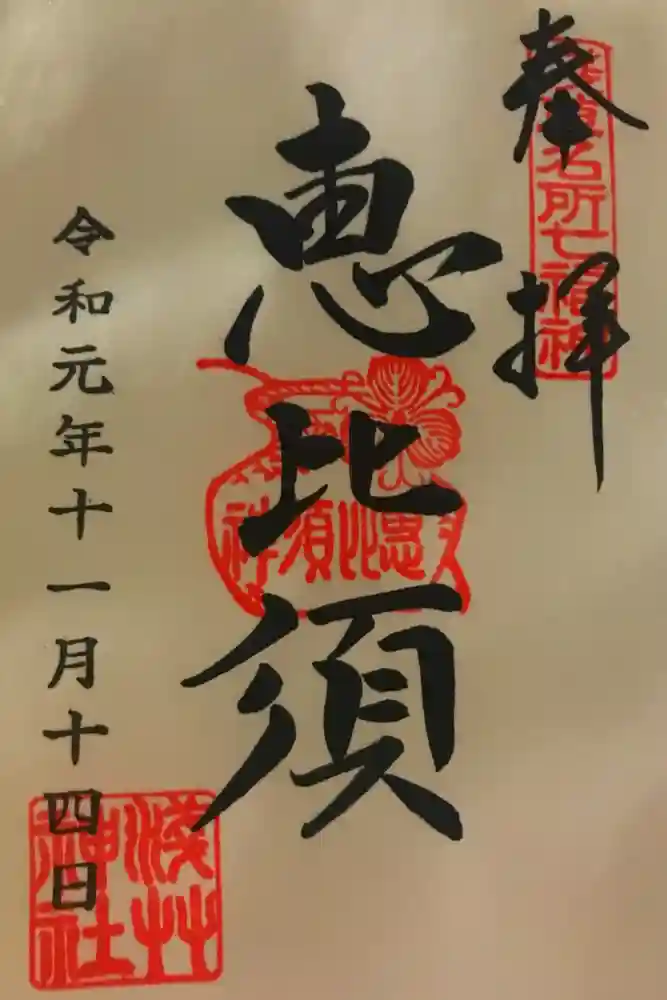 奉拝
浅草名所七福神
恵比須
恵比須神
令和元年十一月十四日
浅草神社